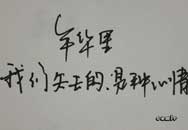 年华里
我们失去的是种心情